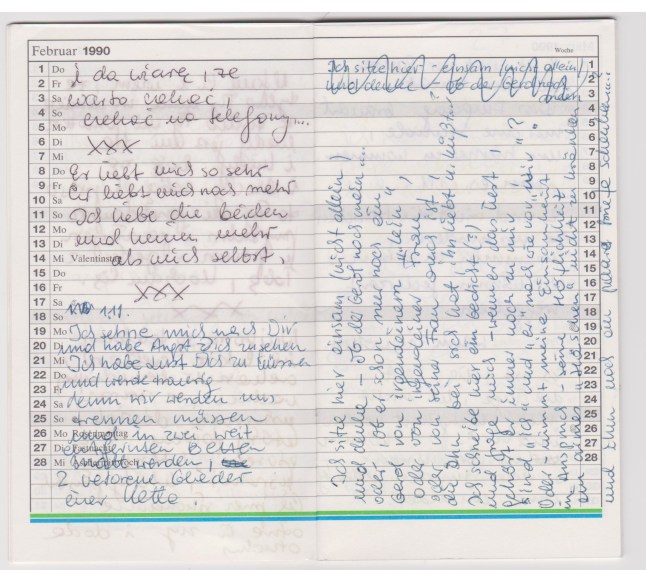 Februar 1990
Woche
1 Do i da wiarę, że
2 Fr
3 Sa warto czekać,
4 So czekać na telefony...
5 Mo
6 Di XXX
7 Mi
8 Do Er liebt mich so sehr
9 Fr Er liebt mich noch mehr
10 Sa
11 So Ich liebe die beiden
12 Mo und keinen mehr
13 Di
14 Mi Valentinstag als mich selbst,
15 Do
16 Fr XXX
17 Sa
18 So 1.11.
19 Mo Ich sehne mich nach Dir
20 Di und habe Angst Dich zu sehen
21 Mi Ich habe Lust Dich zu küssen
22 Do und werde traurig
23 Fr
24 Sa denn wir werden uns
25 So trennen müssen
26 Mo und in zwei weit
27 Di entfernten Betten
28 Mi werden,
2 verlorene Glieder
einer Kette.
Ich sitze hier - einsam (nicht allein)
und denke - ob der
1
2
3
4
5
6
7
8
9
10
11
12
13
14
15
16
17
18
19
20
21
22
23
24
25
26
27
28
Ich sitze hier einsam (nicht allein)
und denke - ob der Gerd noch mein...
oder - ob er schon nur noch ein
Gerd von irgendeinem "
oder von irgendeiner Frau,
oder von seiner Frau ist,
die Ihn bei sich hat, Ihn liebt u. küßt...?
Ich schreibe hier ein Gedicht (?)
und frage mich - wenn er das liest,
gehört er immer noch zu mir,
sind "ich" und "er" noch wie vor "wir"?
Oder - nimmt meine Einsamkeit
in Anspruch - seine Höflichkeit
ein armes "Häschen" nicht zu kränken
und Ihm was auf